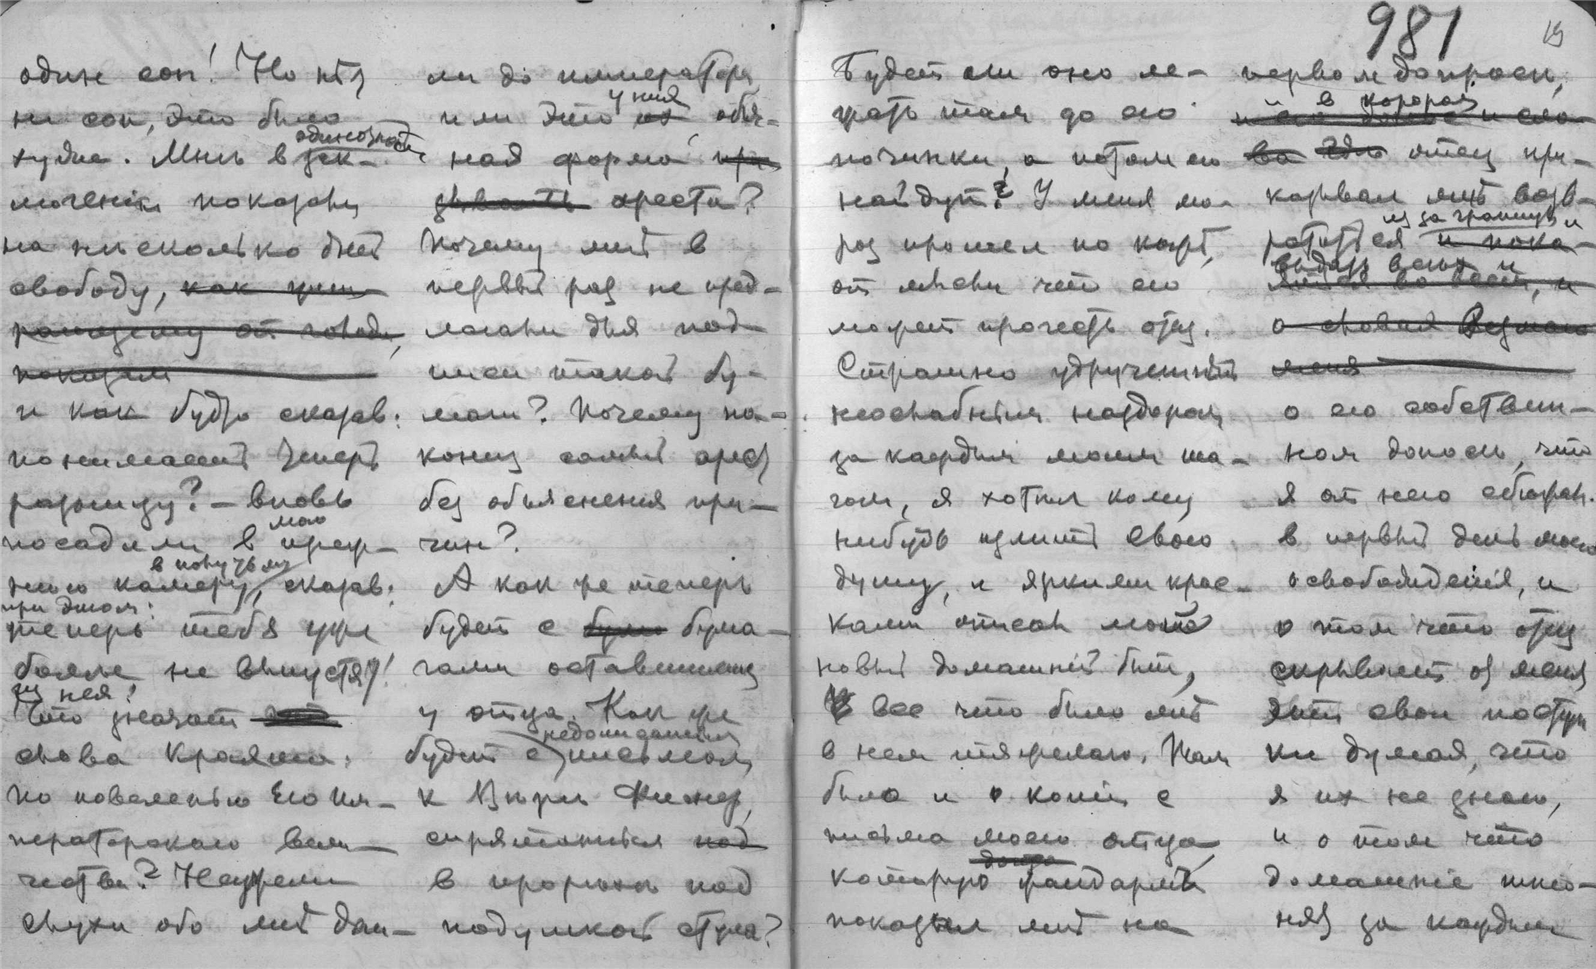 981
19
один сон! Но нет,
не сон, это было
хуже. Мне в
одиночной
мочении показали
на несколько дней
свободу, как
показали
и как будто сказав:
понимаешь теперь
разницу? – вновь
посадили в преж-
мою
нюю камеру, сказав:
в получьму
при этом:
теперь тебя уже
более не выпустят!
из нея!
Что значат
слова Крахта:
по повелению Его Им-
ператорского Вели-
чества? Неужели
слухи обо мне дош-
ли до императора,
или это их обы-
у них
ная форма
ареста?
Почему мне в
первый раз не пред-
лагали для под-
писи такой бу-
маги? Почему на-
конец самый арест
без объяснения при-
чин?
А как же теперь
будет с бума-
гами оставшимися
у отца. Как же
будет с письмом
недописанным
к Вере Фигнер,
спрятанным под
в прорыве под
подушкой стула?
Будет ли оно ле-
жать там до его
починки, а потом его
найдут? У меня мо-
роз прошел по коже,
от мысли что его
может прочесть отец.
Страшно удрученный
неослабным надзором
за каждым моим ша-
гом, я хотел кому
нибудь излить свою
душу, и яркими крас-
ками описал мой
новый домашний быт,
и все что было мне
в нем тяжелого. Там
было и о копии с
письма моего отца,
которую жандармы
показали мне на
первом допросе,
в которой
отец при-
казывал мне возв-
ратиться и пока-
из за границы и
выдать всех и
меня
о его собствен-
ном доносе, что
я от него сбежал
в первый день моего
освобождения, и
о том что отец
скрывает от меня
эти свои поступ-
ки думая, что
я их не знаю,
и о том что
домашние шпио-
нят за каждым